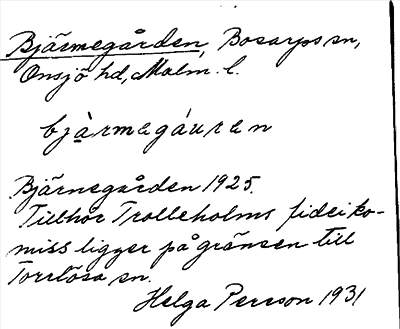 Bjärmegården, Bosarps sn,
Onsjö hd, Malm. l.
bjàrmagáuran
Bjärnegården 1925.
Tillhör Trolleholms fideiko-
miss ligger på gränsen till
Torrlösa sn.
Helga Persson 1931